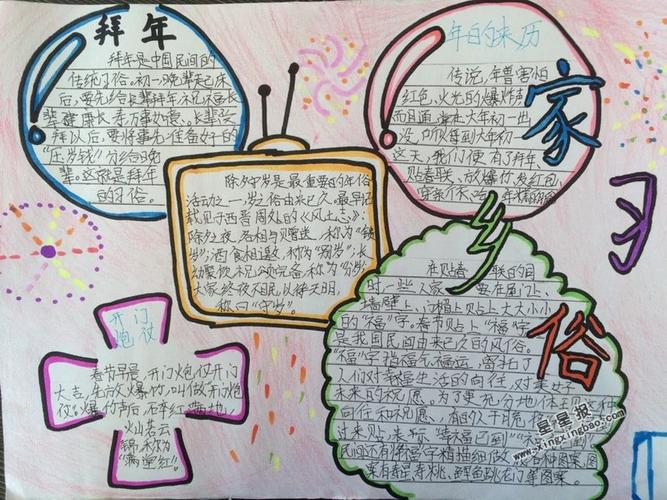 拜年
拜年是中国民间的
传统习俗。初一晚辈起床
后,要先给长辈拜年,祝愿长
辈健康长寿万事如意。长辈受
拜以后,要将事先准备好的
“压岁钱”分给晚
辈。这就是拜年
的习俗。
年的来历
传说,年兽害怕
红色,火光的爆炸声
而且通常在大年初一出
没,所以每到大年初一
这天,我们便有了拜年
贴春联、放爆竹、发红包,
家
乡
习
俗
除夕守岁是最重要的年俗
活动之一,守岁之俗由来已久。最早记
载见于西晋周处的《风土志》:
除夕之夜,各相与赠送,称为“馈
岁”;酒食相邀,称为“别岁”;长
大家终夜不眠,以待天明,
称曰“守岁”。
开门
炮仗
春节早晨,开门炮仗开门
大吉,先放爆竹,叫做“开门炮
仗”。爆竹声后,碎红满地,
灿若云
锦,称为
“满堂红”。
在贴春联的同
时,一些人家要在屋门上、
墙壁上、门楣上贴上大大小小
的“福”字。春节贴上“福”字
是我国民间由来已久的风俗。
“福”字指福气、福运,寄托了
人们对幸福生活的向往,对美好
未来的祝愿。为了更充分地体现这种
向往和祝愿,有的人干脆将
过来贴,表示“幸福已到”“福气已到”
民间还有将“福”字精描细做成各种图案,图
案有寿星、寿桃、鲤鱼跳龙门等图案。
星星报
www.xingxingbao.com